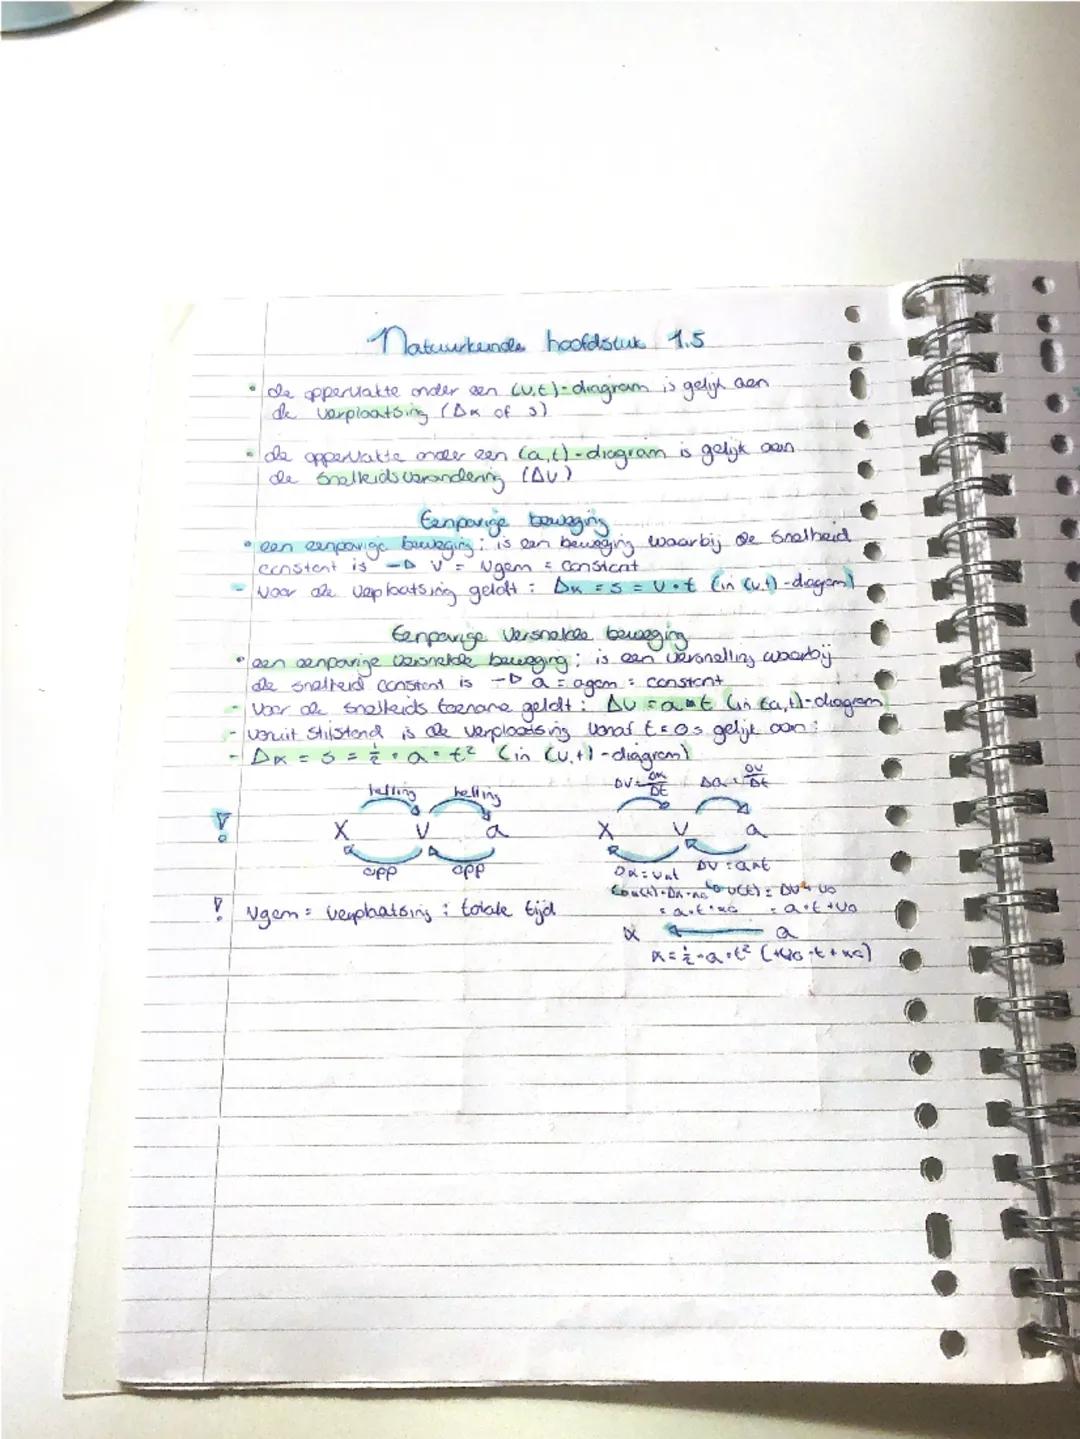 Natuurkunde hoofdstuk 1.5
• de oppervlakte onder een (v,t)-diagram is gelijk aan
de verplaatsing (Δx of s)
• de oppervlakte onder een (a,t)-diagram is gelijk aan
de snelheidsverandering (Δv)
Eenparige beweging
• een eenparige beweging; is een beweging waarbij de snelheid
constant is → v = vgem = constant
- voor de verplaatsing geldt: Δx = s = v · t (in (v,t)-diagam)
Eenparige versnelde beweging
• een eenparige versnelde beweging; is een versnelling waarbij
de snelheid constant is → a = agem = constant
- voor de snelheids toename geldt: Δv = a · t (in (a,t)-diagram
- vanuit stilstand is de verplaatsing vanaf t = 0s gelijk aan:
- Δx = s = ½ · a · t² (in (v,t)-diagram)
helling helling
X V a
opp opp
Δv = Δx/Δt Δa = Δv/Δt
X V a
Δx = v·t Δv = a·t
v(t) = Δv + v0
= a·t + v0
x ← a
x = ½ · a · t² (+v0 · t + x0)
! vgem = verplaatsing : totale tijd